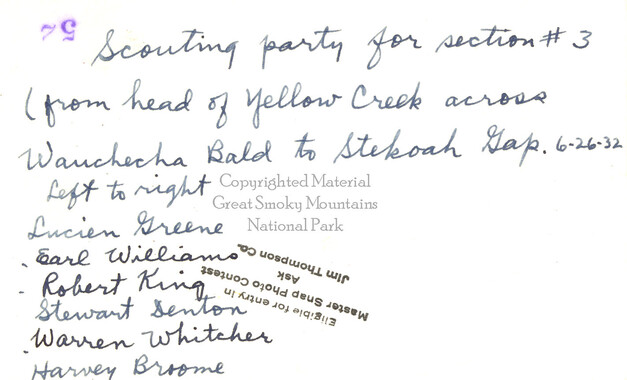 Scouting party for section # 3
(from head of Yellow Creek across
Wauchecha Bald to Stekoah Gap. 6-26-32
Left to right
Lucien Greene
Earl Williams
Robert King
Stewart Denton
Warren Whitcher
Harvey Broome
Copyrighted Material
Great Smoky Mountains
National Park
Eligible for entry in
Master Snap Photo Contest
Ask
Jim Thompson Co.